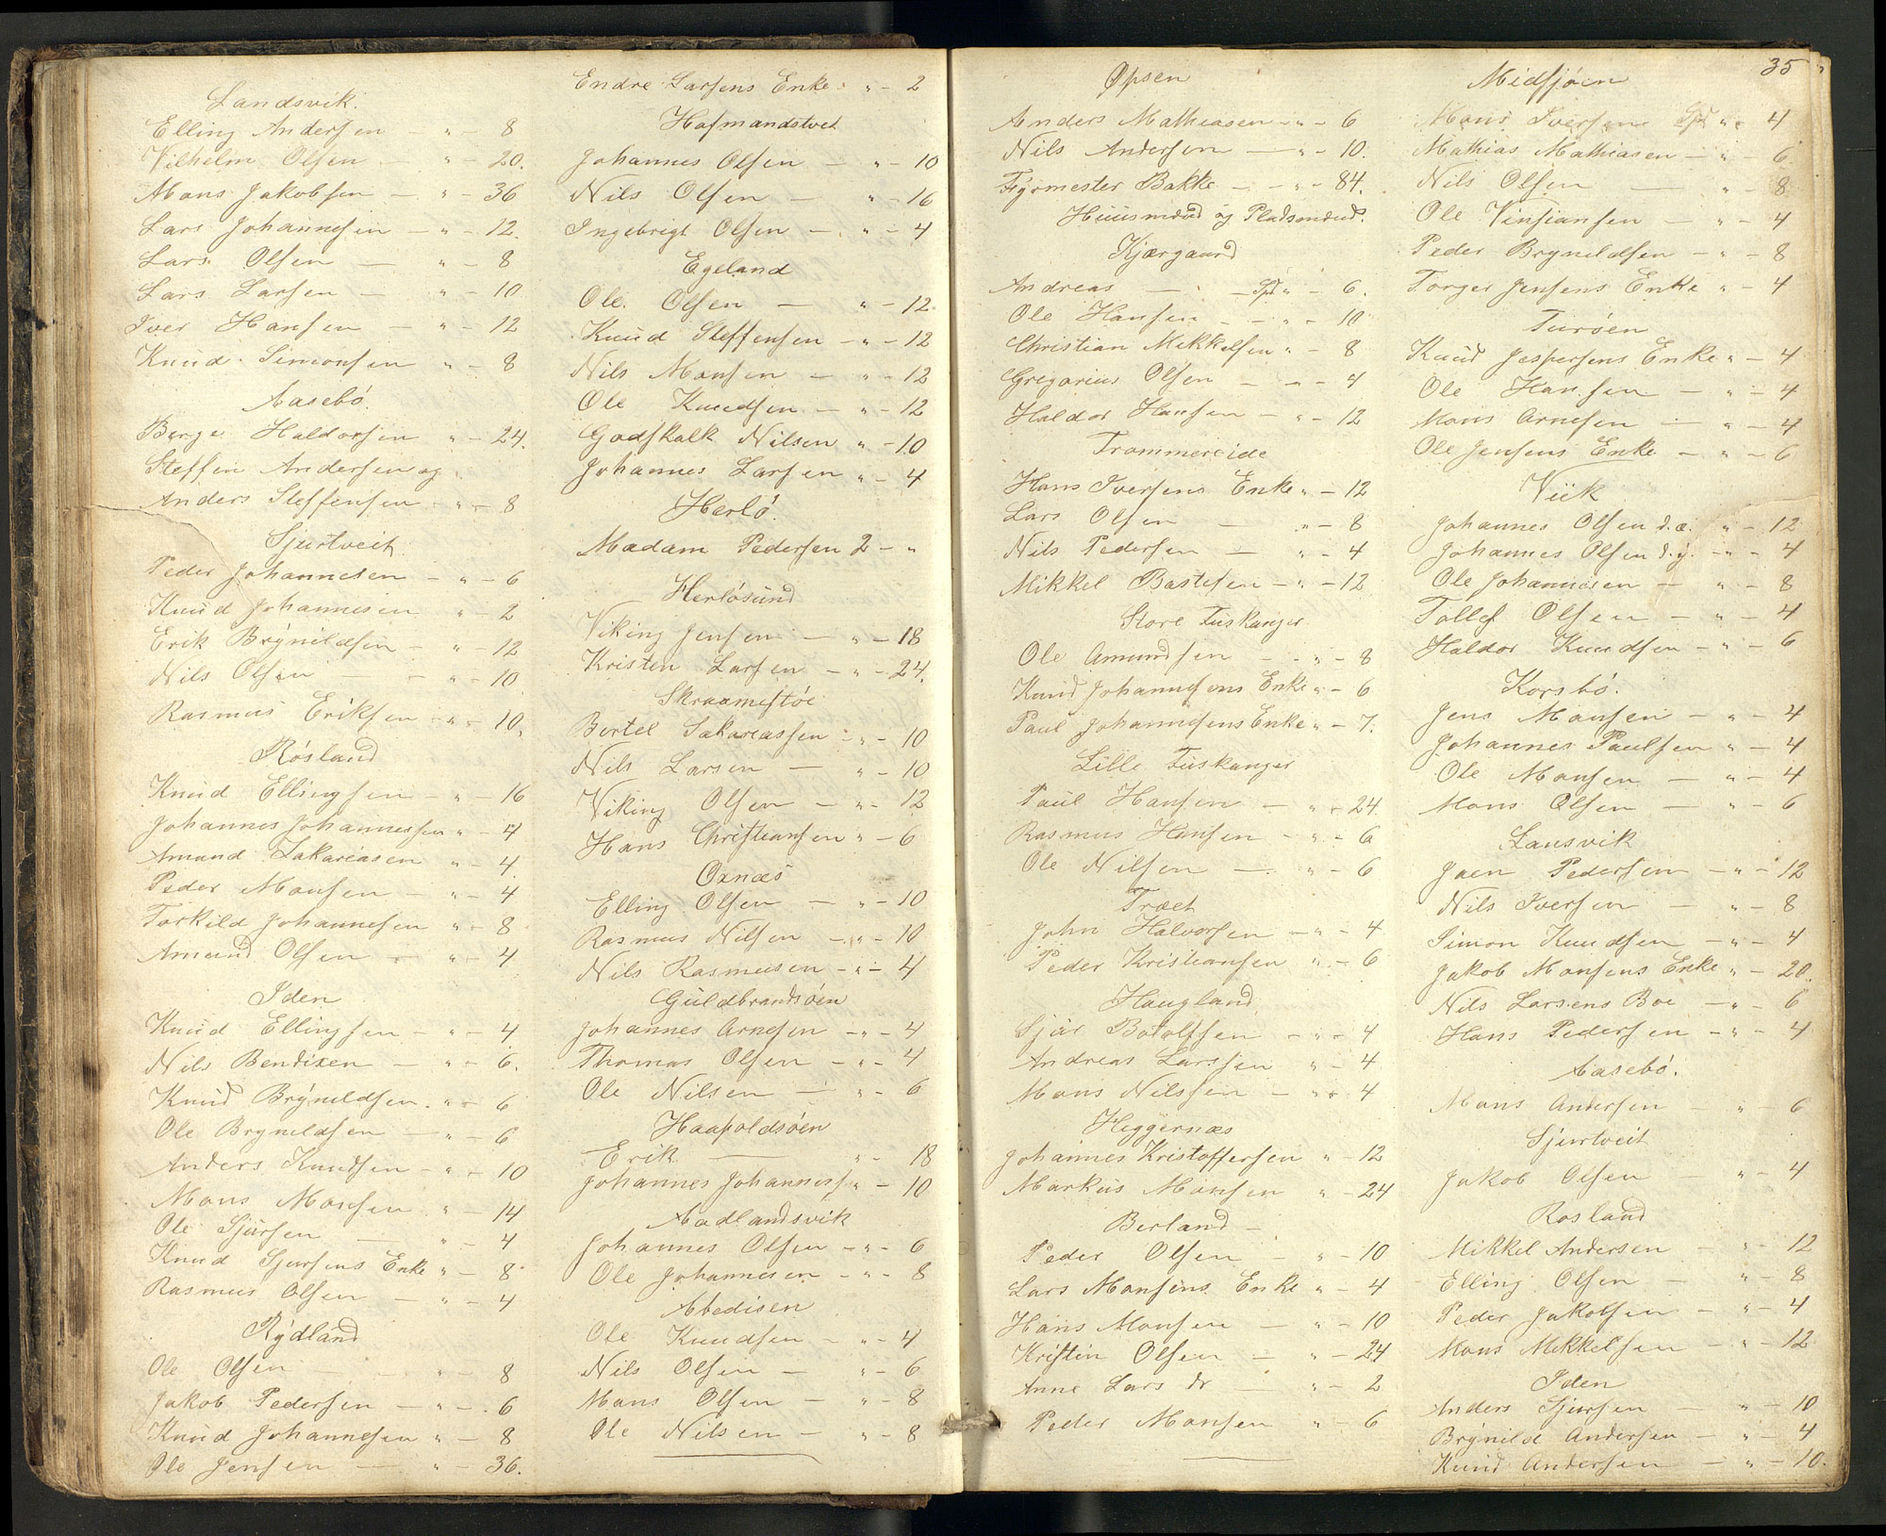 Landsvik.
Elling Andersen — " — 8
Vilhelm Olsen — " — 20.
Mons Jakobsen — " — 36
Lars Johannesen — " — 12.
Lars Olsen — " — 8
Lars Larsen — " — 10
Iver Hansen — " — 12
Knud Simonsen " — 8
Aasebö.
Börge Haldorsen " — 24.
Steffen Andersen og
Anders Steffensen — " — 8
Sjurtveit.
Peder Johannesen — " — 6
Knud Johannesen " — 2
Erik Brynildsen — " — 12
Nils Olsen — " — 10.
Rasmus Eriksen — " — 10.
Rösland
Knud Ellingsen — " — 16
Johannes Johannessen " — 4
Amund Sakariasen " — 4.
Peder Monsen — " — 4
Torkild Johannesen " — 8
Amund Olsen — " — 4
Iden
Knud Ellingsen — " — 4
Nils Bendixen — " — 6.
Knud Brynildsen. " — 6
Ole Brynildsen — " — 6
Anders Knudsen — " — 10
Mons Monsen " — 14
Ole Sjursen — " — 4
Knud Sjursens Enke " — 8
Rasmus Olsen — " — 4
Rydland
Ole Olsen " — 8
Jakob Pedersen — " — 6
Knud Johannesen " — 8
Ole Jensen — " — 36.
Endre Larsens Enke " — 2
Hofmandstvet
Johannes Olsen — " — 10
Nils Olsen — " — 16
Ingebrigt Olsen — " — 4
Egeland
Ole Olsen — " — 12.
Knud Steffensen — " — 12
Nils Monsen — " — 12
Ole Knudsen — " — 12
Godskalk Nilsen " — 10
Johannes Larsen " — 4
Herlö.
Madam Pedersen 2 — "
Herlösund
Viking Jensen — " — 18
Kristen Larsen — " — 24.
Skraamestöe
Bertel Sakariassen — " — 10
Nils Larsen — " — 10
Viking Olsen — " — 12
Hans Christiansen " — 6
Oxnæs
Elling Olsen — " — 10
Rasmus Nilsen — " — 10
Nils Rasmusen — " — 4
Guldbrandsöen
Johannes Arnesen — " — 4
Thomas Olsen — " — 4
Ole Nilsen — " — 6
Haapoldsöen
Erik — " — 18
Johannes Johanness. " — 10
Aadlandsvik
Johannes Olsen — " — 6
Ole Johannesen — " — 8
Abedisen
Ole Knudsen — " — 4
Nils Olsen — " — 6
Mons Olsen — " — 8
Ole Nilsen — " — 8
Øpsen
Anders Mathiasen — " — 6
Nils Andersen — " — 10.
Fyrmester Bakke — " — 84.
Huusmænd og Pladsmænd.
Kjærgaard
Andreas — Spd " — 6.
Ole Hansen — " — 10
Christian Mikkelsen " — 8
Gregorius Olsen — " — 4
Haldor Hansen — " — 12
Trommereide
Hans Iversens Enke " — 12
Lars Olsen — " — 8
Nils Pedersen — " — 4
Mikkel Bastesen — " — 12
Store Fuskanger
Ole Amundsen — " — 8
Knud Johannesens Enke " — 6
Paul Johannesens Enke " — 7.
Lille Fuskanger
Paul Hansen — " — 24.
Rasmus Hansen — " — 6
Ole Nilsen — " — 6
Træet
John Halvorsen — " — 4
Peder Kristiansen " — 6
Haugland
Sjur Botolfsen — " — 4
Andreas Larssen " — 4
Mons Nilssen — " — 4
Heggernæs
Johannes Kristoffersen " — 12
Markus Monsen " — 24
Berland —
Peder Olsen — " — 10
Lars Monsens Enke " — 4
Hans Monsen — " — 10
Kristen Olsen — " — 24
Anne Lars dr — " — 2
Peder Monsen " — 6
35
Midsjöen
Mons Iversen Spd " — 4
Mathias Mathiasen — " — 6.
Nils Olsen — " — 8
Ole Vinsiansen — " — 4
Peder Brynildsen — " — 8
Torger Jensens Enke " — 4
Turöen
Knud Jespersens Enke " — 4
Ole Hansen — " — 4
Mons Arnesen — " — 4
Ole Jensens Enke — " — 6
Viik
Johannes Olsen d.æ. " — 12
Johannes Olsen d.y. — " — 4
Ole Johannesen — " — 8
Tollef Olsen — " — 4
Haldor Knudsen — " — 6
Korsbö.
Jens Monsen — " — 4
Johannes Paulsen " — 4
Ole Monsen — " — 4
Mons Olsen — " — 6
Lansvik
Joen Pedersen — " — 12
Nils Iversen — " — 8
Simon Knudsen — " — 4
Jakob Monsens Enke " — 20.
Nils Larsens Boe — " — 6
Hans Pedersen — " — 4
Aasebö.
Mons Andersen — " — 6
Sjurtveit
Jakob Olsen — " — 4
Rosland
Mikkel Andersen — " — 12
Elling Olsen — " — 8
Peder Jakobsen — " — 4
Mons Mikkelsen — " — 12
Iden
Anders Sjursen — " — 10
Brynild Andersen — " — 4
Knud Andersen — " — 10.